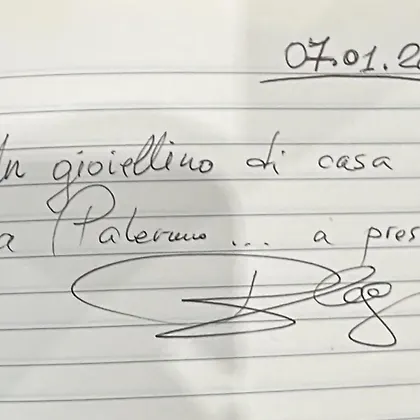 07.01.2
n gioiellino di casa
a Palermo ... a pres